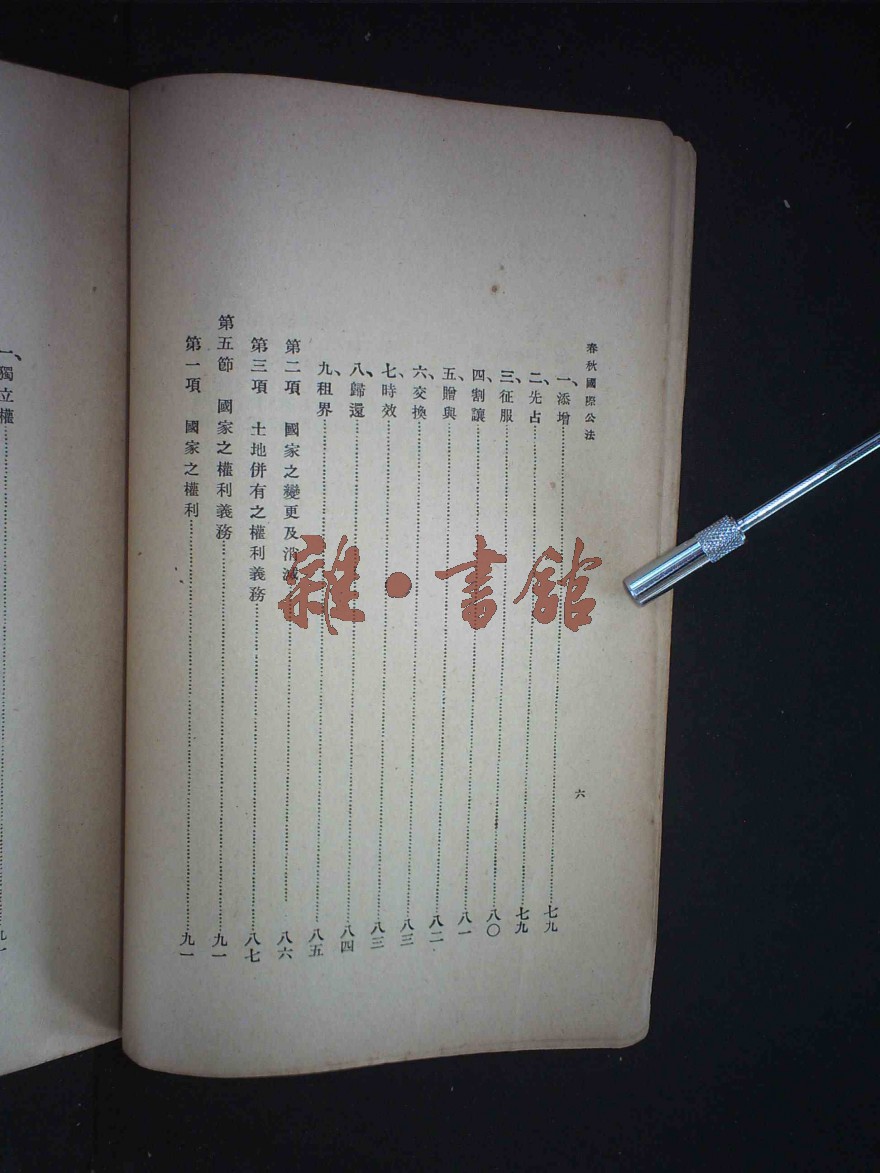 春秋國際公法
六
一、添增……七九
二、先占……七九
三、征服……八〇
四、割讓……八一
五、贈與……八二
六、交換……八三
七、時效……八三
八、歸還……八四
九、租界……八五
第二項 國家之變更及消滅……八六
第三項 土地併有之權利義務……八七
第五節 國家之權利義務……九一
第一項 國家之權利……九一
一、獨立權……
雜·書館